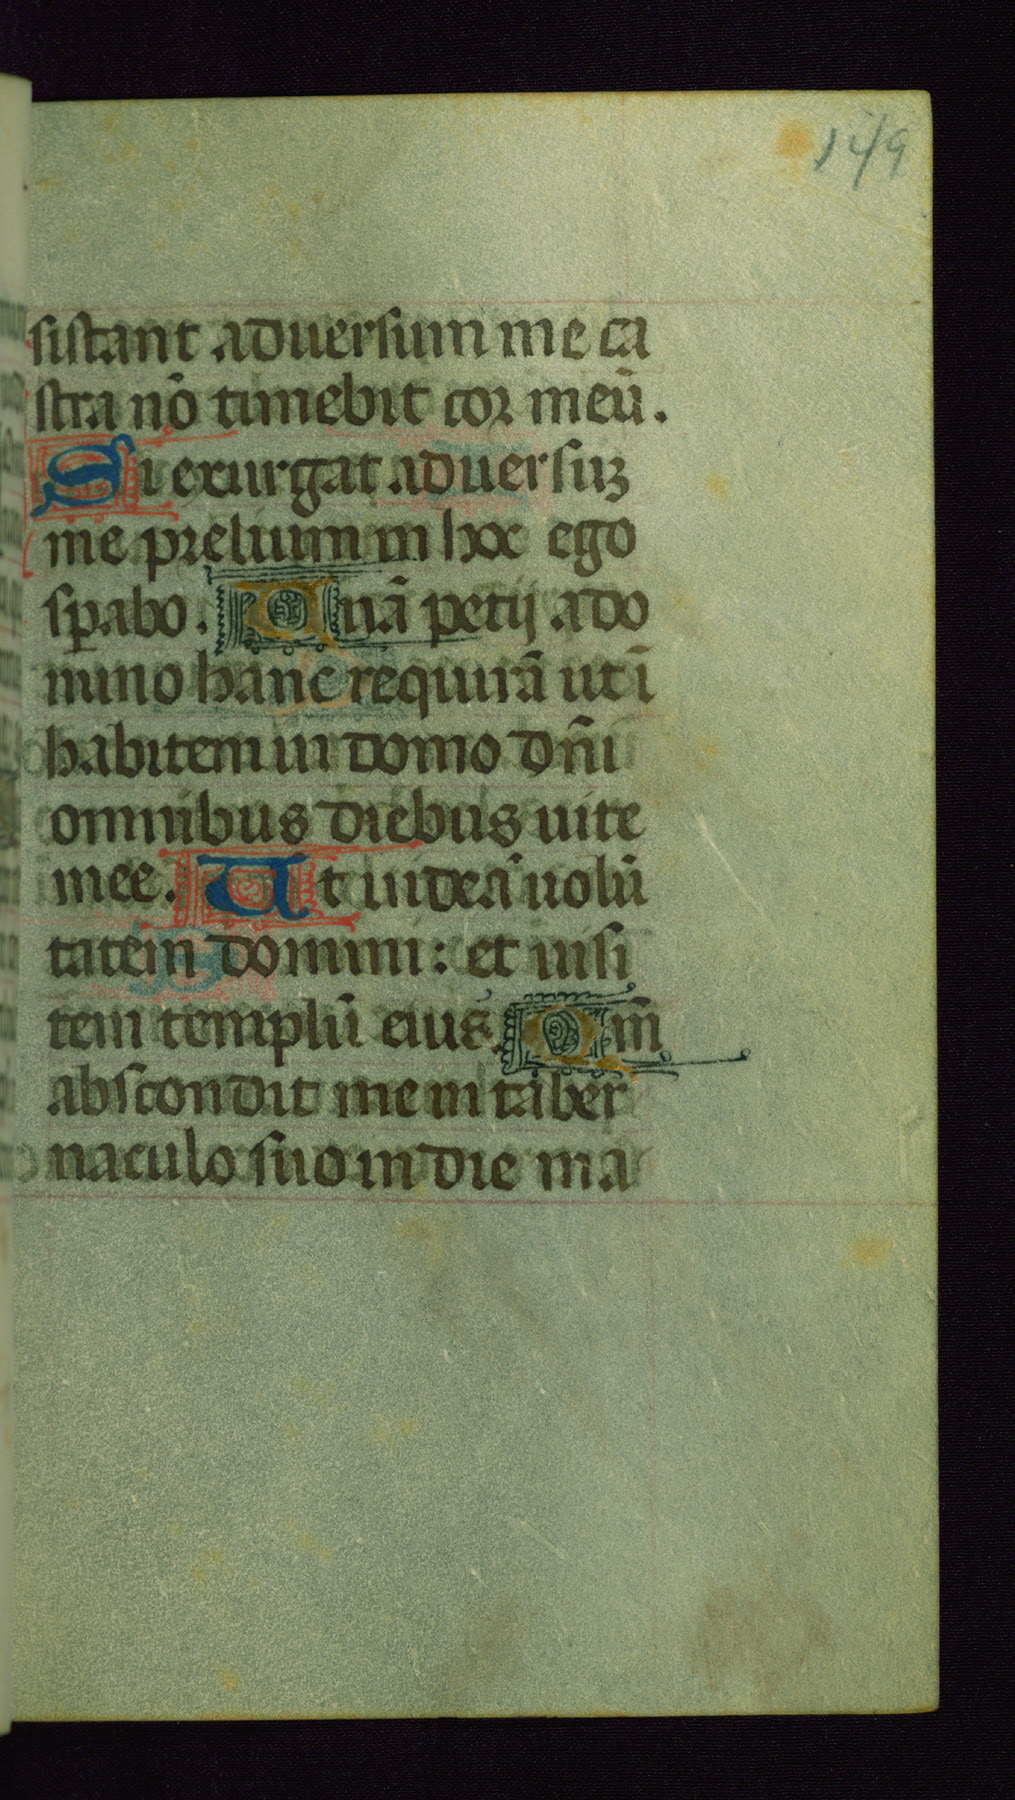 149
sistant aduersum me ca
stra nō timebit cor meū.
Si exurgat aduersuꝫ
me prelium in hoc ego
sꝑabo. Unā petij a do
mino hanc requirā ut ī
habitem in domo dn̄i
omnibus diebus uite
mee. Ut uideā uolū
tatem domini: et uisi
tem templū eius. Qm̄
abscondit me in taber
naculo suo in die ma